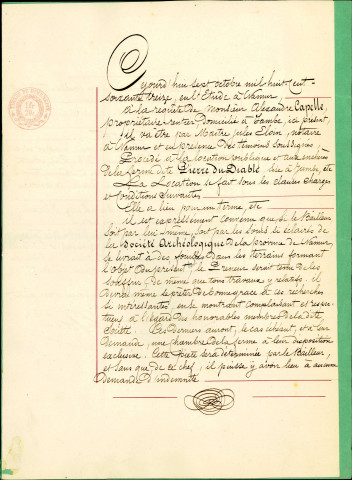 Cejourd'hui sept octobre mil huit cent
soixante treize, en l'Etude à Namur,
A la requête de Monsieur Alexandre Capelle,
propriétaire rentier domicilié à Jambe, ici présent,
il va être par Maître Jules Eloin, notaire
à Namur et en présence des témoins soussignés,
Procédé à la location publique et aux enchères
de la ferme dite Pierre du Diable sise à Jambe, etc
La Location se fait sous les clauses charges
et conditions suivantes
Elle a lieu pour un terme etc
il est expressément convenu que si le Bailleur
soit par lui même, soit par les soins si éclairés de
la Société Archéologique de la province de Namur,
se livrait à des fouilles dans les terrains formant
l'objet du présent, le Preneur serait tenu de les
souffrir, de même que tous travaux y relatifs. il
devrait même se prêter de bonne grâce à ces recherches
si intéressantes, en se montrant complaisant et respec-
tueux à l'égard des honorables membres de la dite
Société. Ces derniers auront, le cas échéant, et à leur
demande, une chambre de la ferme à leur disposition
exclusive. Cette pièce sera déterminée par le Bailleur,
et sans que de ce chef, il puisse y avoir lieu à aucune
demande d'indemnité